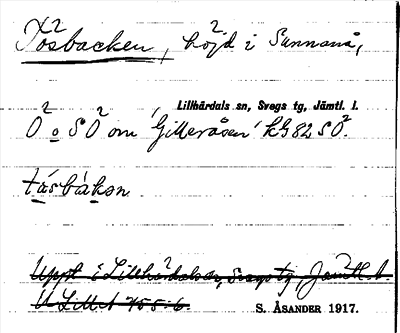 Tösbacken, höjd i Sunnanå,
Lillhärdals sn, Svegs tg, Jämtl. l.
Ö o SÖ om 'Gilleråsen' kG82SÖ.
tásbàkən
Uppt i Lillhärdals sn, Svegs tg, Jämtl. l.
S. ÅSANDER 1917.